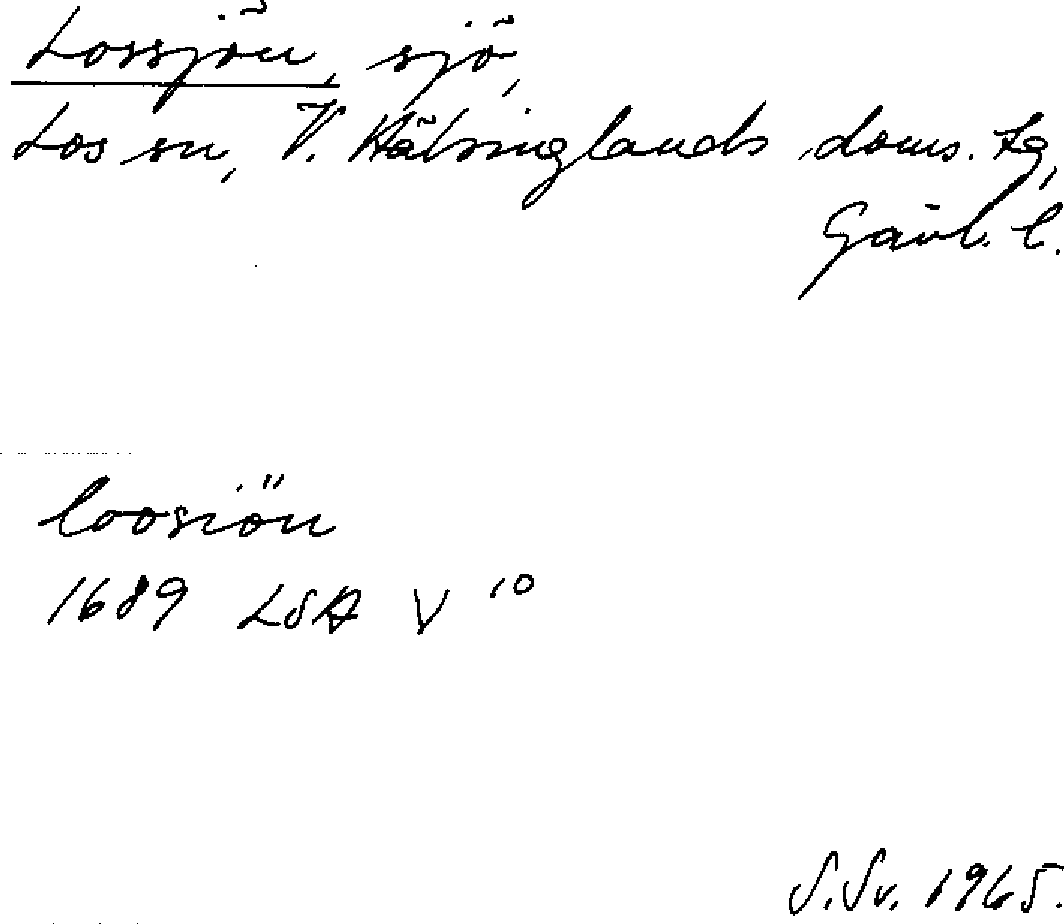 Lossjön, sjö,
Los sn, V. Hälsinglands doms. tg,
Gävl. l.
loosiön
1689 LSA V 10
S. Sv. 1965.